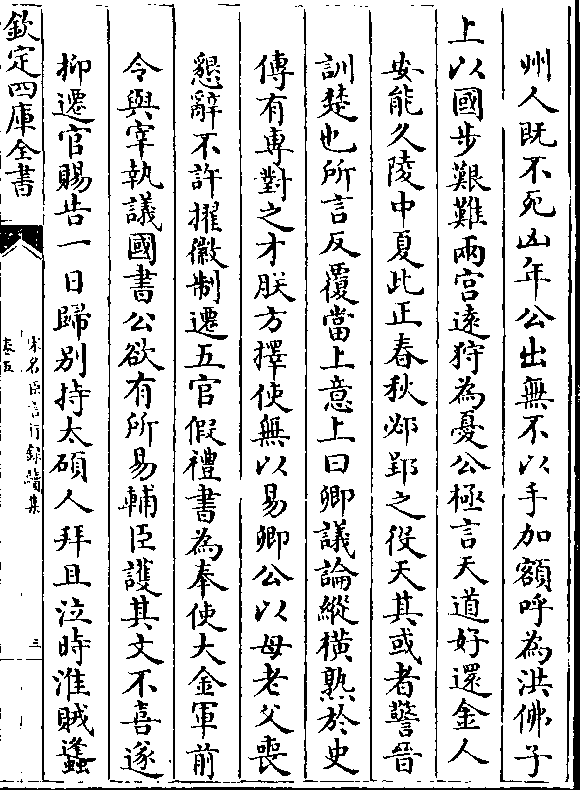 州人既不死凶年公出無不以手加額呼為洪佛子
上以國步艱難兩宫遠狩為憂公極言天道好還金人
安能久陵中夏此正春秋邲郢之役天其或者警晉
訓楚也所言反覆當上意上曰卿議論縱橫熟於史
傳有専對之才朕方擇使無以易卿公以母老父喪
懇辭不許擢徽制遷五官假禮書為奉使大金軍前
令與宰執議國書公欲有所易輔臣護其文不喜遂
抑遷官賜告一日歸别持太碩人拜且泣時淮賊蠭
欽定四庫全書
宋名臣言行録續集
卷五
三